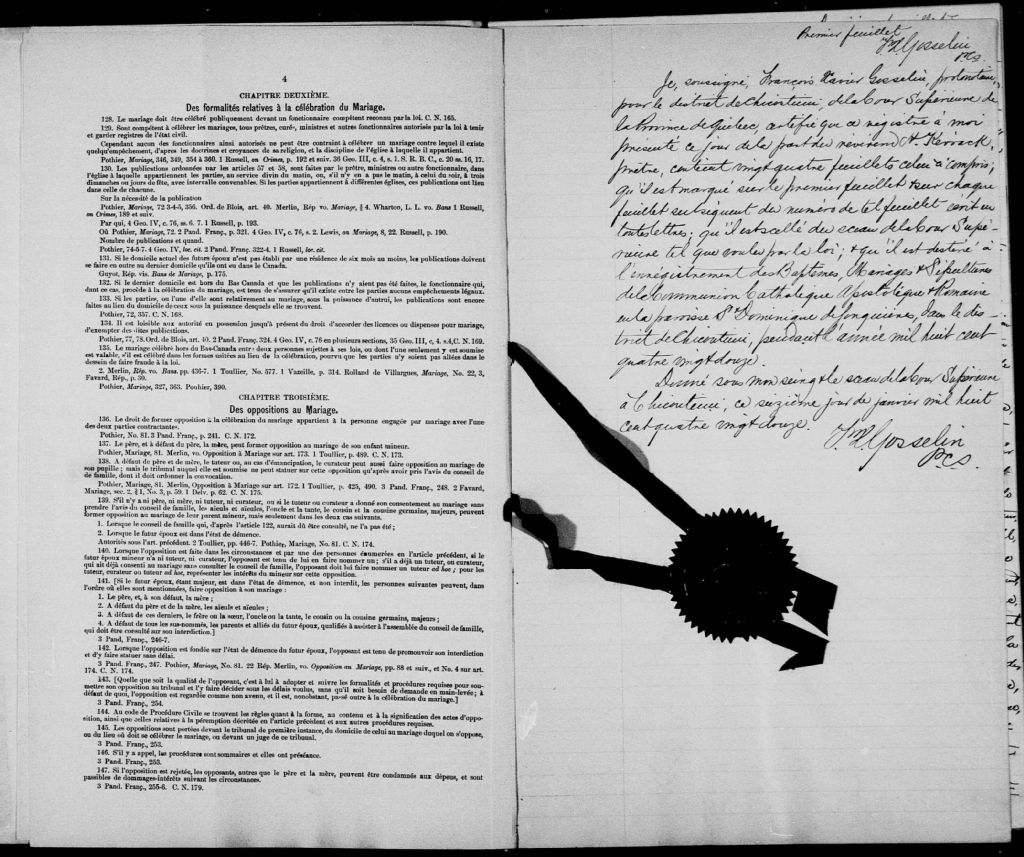 4
CHAPITRE DEUXIÈME.
Des formalités relatives à la célébration du Mariage.
128. Le mariage doit être célébré publiquement devant un fonctionnaire compétent reconnu par la loi. C. N. 165.
129. Sont compétents à célébrer les mariages, tous prêtres, curés, ministres et autres fonctionnaires autorisés par la loi à tenir
et garder registres de l'état civil.
Cependant aucun des fonctionnaires ainsi autorisés ne peut être contraint à célébrer un mariage contre lequel il existe
quelqu'empêchement, d'après les doctrines et croyances de sa religion, et la discipline de l'église à laquelle il appartient.
Pothier, Mariage, 346, 349, 354 à 360. 1 Russell, on Crimes, p. 192 et suiv. 36 Geo. III, c. 4, s. 1. S. R. B. C., c. 20 ss. 16, 17.
130. Les publications ordonnées par les articles 57 et 58, sont faites par le prêtre, ministre ou autre fonctionnaire, dans
l'église à laquelle appartiennent les parties, au service divin du matin, ou, s'il n'y en a pas le matin, à celui du soir, à trois
dimanches ou jours de fête, avec intervalle convenables. Si les parties appartiennent à différentes églises, ces publications ont lieu
dans celle de chacune.
Sur la nécessité de la publication
Pothier, Mariage, 72 3-4-5, 356. Ord. de Blois, art. 40. Merlin, Rép vo. Mariage, § 4. Wharton, L. L. vo. Bans 1 Russell,
on Crimes, 189 et suiv.
Par qui, 4 Geo. IV, c. 76, ss. 6. 7. 1 Russell, p. 193.
Où Pothier, Mariage, 72. 2 Pand. Franç., p. 321. 4 Geo. IV, c. 76, s. 2. Lewis, on Marriage, 8, 22. Russell, p. 190.
Nombre de publications et quand.
Pothier, 74-5-7. 4 Geo. IV, loc. cit. 2 Pand. Franç. 322-4. 1 Russell, loc. cit.
131. Si le domicile actuel des futurs époux n'est pas établi par une résidence de six mois au moins, les publications doivent
se faire en outre au dernier domicile qu'ils ont eu dans le Canada.
Guyot, Rép. vis. Bans de Mariage, p. 175.
132. Si le dernier domicile est hors du Bas Canada et que les publications n'y aient pas été faites, le fonctionnaire qui,
dans ce cas, procède à la célébration du mariage, est tenu de s'assurer qu'il existe entre les parties aucuns empêchements légaux.
133. Si les parties, ou l'une d'elle sont relativement au mariage, sous la puissance d'autrui, les publications sont encore
faites au lieu du domicile de ceux sous la puissance desquels elle se trouvent.
Pothier, 72, 357. C. N. 168.
134. Il est loisible aux autorité en possession jusqu'à présent du droit d'accorder des licences ou dispenses pour mariage,
d'exempter des dites publications.
Pothier, 77, 78. Ord. de Blois, art. 40. 2 Pand Franç. 324. 4 Geo. IV, c. 76 en plusieurs sections, 35 Geo. III, c. 4. s.4, C. N. 169.
135. Le mariage célébré hors du Bas-Canada entre deux personnes sujettes à ses lois, ou dont l'une seulement y est soumise
est valable, s'il est célébré dans les formes usitées au lieu de la célébration, pourvu que les parties n'y soient pas allées dans le
dessein de faire fraude à la loi.
2. Merlin, Rép. vo. Bans. pp. 436-7. 1 Toullier, No. 577. 1 Vazeille, p. 314. Rolland de Villargues, Mariage, No. 22, 3,
Favard, Rép., p. 30.
Pothier, Mariage, 327, 363. Pothier, 390.
CHAPITRE TROISIÈME.
Des oppositions au Mariage.
136. Le droit de former opposition à la célébration du mariage appartient à la personne engagée par mariage avec l'une
des deux parties contractantes.
Pothier, No. 81. 3 Pand. Franç., p. 241. C. N. 172.
137. Le père, et à défaut du père, la mère, peut former opposition au mariage de son enfant mineur.
Pothier, Mariage, 81. Merlin, vo. Opposition à Mariage sur art. 173. 1 Toullier, p. 489. C. N. 173.
138. A défaut de père et de mère, le tuteur ou, au cas d'émancipation, le curateur peut aussi faire opposition au mariage de
son pupille ; mais le tribunal auquel elle est soumise ne peut statuer sur cette opposition qu'après avoir pris l'avis du conseil de
famille, dont il doit ordonner la convocation.
Pothier, Mariage, 81. Merlin, Opposition à Mariage sur art. 172. 1 Toullier, p. 425, 490. 3 Pand. Franç., 248. 2 Favard,
Mariage, sec. 2, § 1, No. 3, p. 59. 1 Delv. p. 62. C. N. 175.
139. S'il n'y a ni père, ni mère, ni tuteur, ni curateur, ou si le tuteur ou curateur a donné son consentement au mariage sans
prendre l'avis du conseil de famille, les aïeuls et aïeules, l'oncle et la tante, le cousin et la cousine germains, majeurs, peuvent
former opposition au mariage de leur parent mineur, mais seulement dans les deux cas suivants.
1. Lorsque le conseil de famille qui, d'après l'article 122, aurait dû être consulté, ne l'a pas été ;
2. Lorsque le futur époux est dans l'état de démence.
Autorités sous l'art. précédent. 2 Toullier, pp. 446-7. Pothier, Mariage, No. 81. C. N. 174.
140. Lorsque l'opposition est faite dans les circonstances et par une des personnes énumérées en l'article précédent, si le
futur époux mineur n'a ni tuteur, ni curateur, l'opposant est tenu de lui en faire nommer un ; s'il a déjà un tuteur, ou curateur,
qui ait déjà consenti au mariage sans consulter le conseil de famille, l'opposant doit lui faire nommer un tuteur ad hoc ; pour les
tuteur, curateur ou tuteur ad hoc, représenter les intérêts du mineur sur cette opposition.
141. [Si le futur époux, étant majeur, est dans l'état de démence, et non interdit, les personnes suivantes peuvent, dans
l'ordre où elles sont mentionnées, faire opposition à son mariage :
1. Le père, et, à son défaut, la mère ;
2. A défaut du père et de la mère, les aïeuls et aïeules ;
3. A défaut de ces derniers, le frère ou la sœur, l'oncle ou la tante, le cousin ou la cousine germains, majeurs ;
4. A défaut de tous les sus-nommés, les parents et alliés du futur époux, qualifiés à assister à l'assemblée du conseil de famille,
qui doit être consulté sur son interdiction.]
3 Pand. Franç., 246-7.
142. Lorsque l'opposition est fondée sur l'état de démence du futur époux, l'opposant est tenu de promouvoir son interdiction
et d'y faire statuer sans délai.
3 Pand. Franç., 247. Pothier, Mariage, No. 81. 22 Rép. Merlin, vo. Opposition au Mariage, pp. 88 et suiv., et No. 4 sur art.
174. C. N. 174.
143. [Quelque que soit la qualité de l'opposant, c'est à lui à adopter et suivre les formalités et procédures requises pour sou-
mettre son opposition au tribunal et l'y faire décider sous les délais voulus, sans qu'il soit besoin de demande en main-levée ; à
défaut de quoi, l'opposition est regardée comme non avenu, et il est, nonobstant, passé outre à la célébration du mariage.]
3 Pand. Franç., 254.
144. Au code de Procédure Civile se trouvent les règles quant à la forme, au contenu et à la signification des actes d'oppo-
sition, ainsi que celles relatives à la péremption décrétée en l'article précédent et aux autres procédures requises.
145. Les oppositions sont portées devant le tribunal de première instance, du domicile de celui au mariage duquel on s'oppose,
ou du lieu où doit se célébrer le mariage, ou devant un juge de ce tribunal.
3 Pand. Franç., 253.
146. S'il y a appel, les procédures sont sommaires et elles ont préséance.
3 Pand. Franç., 253.
147. Si l'opposition est rejetée, les opposants, autres que le père et la mère, peuvent être condamnés aux dépens, et sont
passibles de dommages-intérêts suivant les circonstances.
3 Pand. Franç., 255-6. C. N. 179.
Premier feuillet
F. X. Gosselin
P.C.S.
Je, soussigné, François Xavier Gosselin, protonotaire,
pour le district de Chicoutimi, de la Cour Supérieure de
la Province de Québec, certifie que ce registre à moi
présenté ce jour de la part du révérend H. Kérouack,
prêtre, contient vingt quatre feuillets celui-ci compris;
qu'il est marqué sur le premier feuillet & sur chaque
feuillet subséquent du numéro de tel feuillet écrit en
toutes lettres; qu'il est scellé du sceau de la Cour Supé-
rieure tel que voulu par la loi; & qu'il est destiné à
l'enregistrement des Baptêmes, Mariages & Sépultures
de la Communion Catholique Apostolique & Romaine
en la paroisse St Dominique de Jonquières, dans le dis-
trict de Chicoutimi, pendant l'année mil huit cent
quatre vingt douze.
Donné sous mon seing & le sceau de la Cour Supérieure
à Chicoutimi, ce seizième jour de janvier mil huit
cent quatre vingt douze.
F. X. Gosselin
P.C.S.